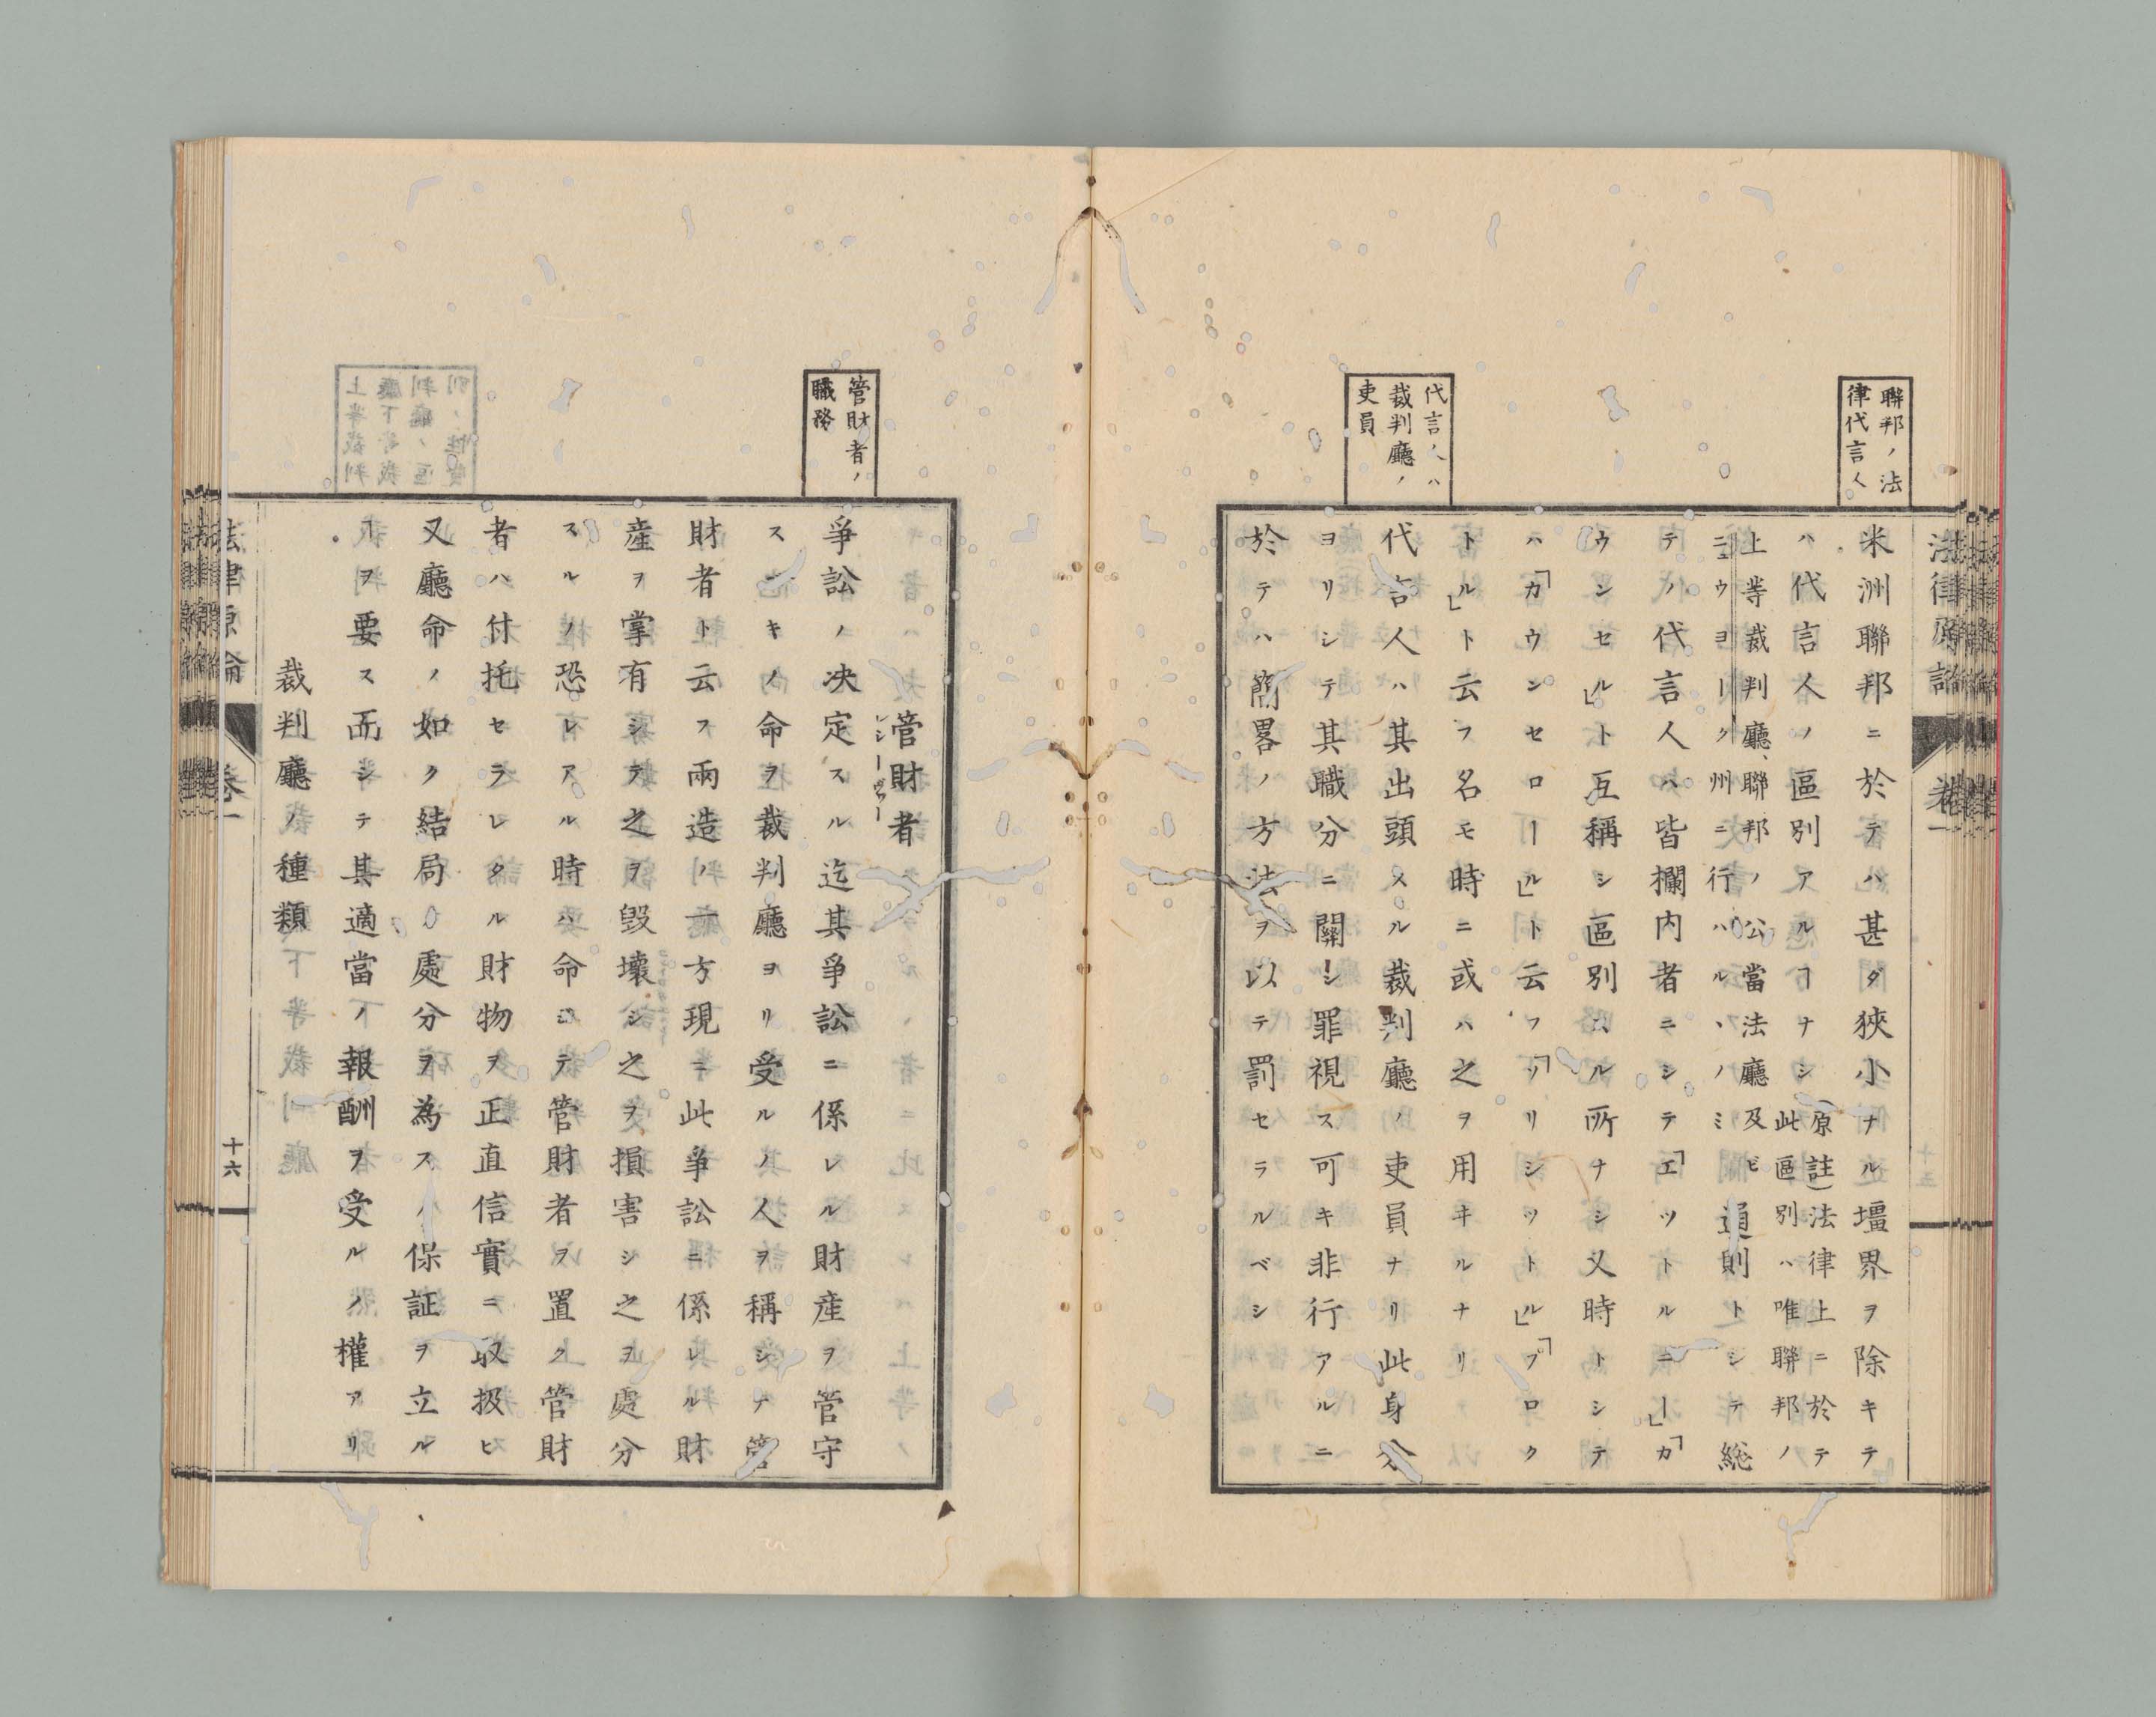 法律原論
卷一
聯邦ノ法
律代言人
米洲聯邦ニ於テハ甚ダ狹小ナル壃界ヲ除キテ
ハ代言人ノ區別アルヿナシ
(原註)法律上ニ於テ
此區別ハ唯聯邦ノ
上等裁判廳、聯邦ノ公當法廳及ビ
ニウヨーク州ニ行ハルヽノミ
通則トシテ総
テノ代言人ハ皆欄内者ニシテ「エツトルニー」「カ
ウンセル」ト互稱シ區別スル所ナシ又時トシテ
ハ「カウンセロール」ト云フ「ソリシツトル」「プロク
トル」ト云フ名モ時ニ或ハ之ヲ用ヰルナリ
代言人ハ
裁判廳ノ
吏員
代言人ハ其出頭スル裁判廳ノ吏員ナリ此身分
ヨリシテ其職分ニ關シ罪視ス可キ非行アルニ
於テハ簡畧ノ方法ヲ以テ罰セラルベシ
管財者
レシーヴァー
管財者ノ
職務
爭訟ノ决定スル迄其爭訟ニ係レル財産ヲ管守
スベキノ命ヲ裁判廳ヨリ受ルノ人ヲ稱シテ管
財者ト云フ兩造ノ一方現ニ此爭訟ニ係レル財
産ヲ掌有シテ之ヲ毀壞シ之ヲ損害シ之ヲ處分
スルノ恐レアル時ハ命シテ管財者ヲ置ク管財
者ハ付托セラレタル財物ヲ正直信實ニ取扱ヒ
又廳命ノ如ク結局ノ處分ヲ為スノ保証ヲ立ル
ヿヲ要ス而シテ其適當ノ報酬ヲ受ルノ權アリ
裁判廳ノ種類
法律原論
卷一
十六